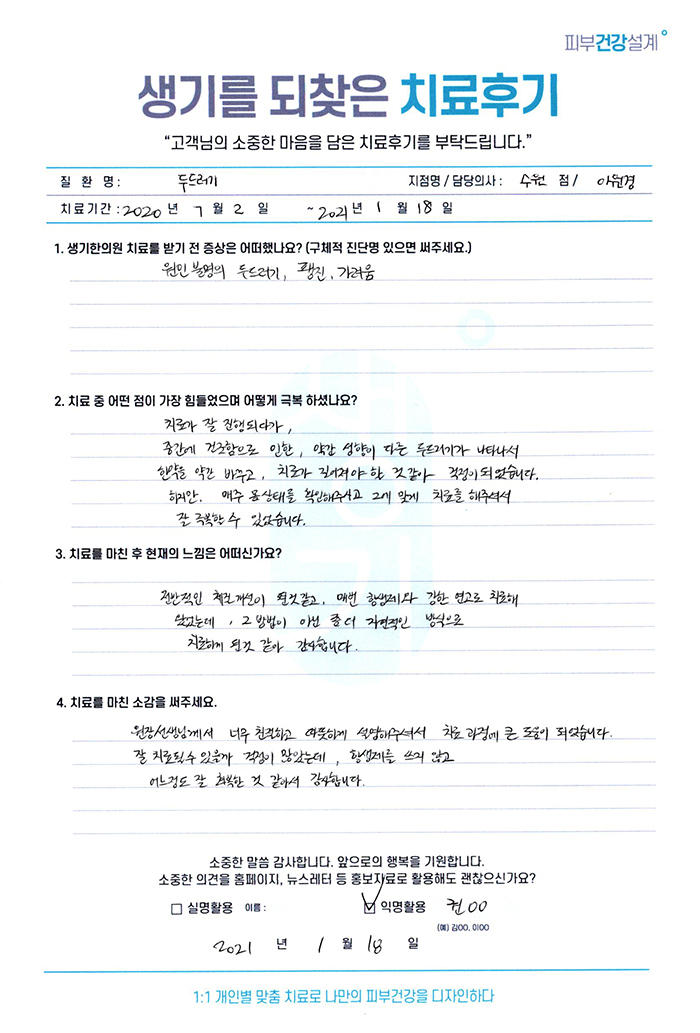 피부건강설계
생기를 되찾은 치료후기
“고객님의 소중한 마음을 담은 치료후기를 부탁드립니다.”
질 환 명 : 두드러기 지점명 / 담당의사 : 수원 점 / 이원경
치료기간 : 2020 년 7 월 2 일 ~ 2021 년 1 월 18 일
1. 생기한의원 치료를 받기 전 증상은 어떠했나요? (구체적 진단명 있으면 써주세요.)
원인 불명의 두드러기, 팽진, 가려움
2. 치료 중 어떤 점이 가장 힘들었으며 어떻게 극복 하셨나요?
치료가 잘 진행되다가,
중간에 건조함으로 인한, 약간 성향이 다른 두드러기가 나타나서
한약을 약간 바꾸고, 치료가 길어져야 할 것 같아 걱정이 되었습니다.
하지만. 매주 몸상태를 확인해주시고 그에 맞게 치료를 해주셔서
잘 극복할 수 있었습니다.
3. 치료를 마친 후 현재의 느낌은 어떠신가요?
전반적인 체질개선이 된것같고, 매번 항생제와 강한 연고로 치료해
왔었는데, 그 방법이 아닌 좀 더 자연적인 방식으로
치료하게 된것 같아 감사합니다.
4. 치료를 마친 소감을 써주세요.
원장선생님께서 너무 친절하고 따뜻하게 설명해주셔서 치료 과정에 큰 도움이 되었습니다.
잘 치료될수 있을까 걱정이 많았는데, 항생제를 쓰지 않고
어느정도 잘 회복한 것 같아서 감사합니다.
생기
소중한 말씀 감사합니다. 앞으로의 행복을 기원합니다.
소중한 의견을 홈페이지, 뉴스레터 등 홍보자료로 활용해도 괜찮으신가요?
□ 실명활용 이름 : ☑ 익명활용 권OO
(예) 김OO, 이OO
2021 년 1 월 18 일
1:1 개인별 맞춤 치료로 나만의 피부건강을 디자인하다